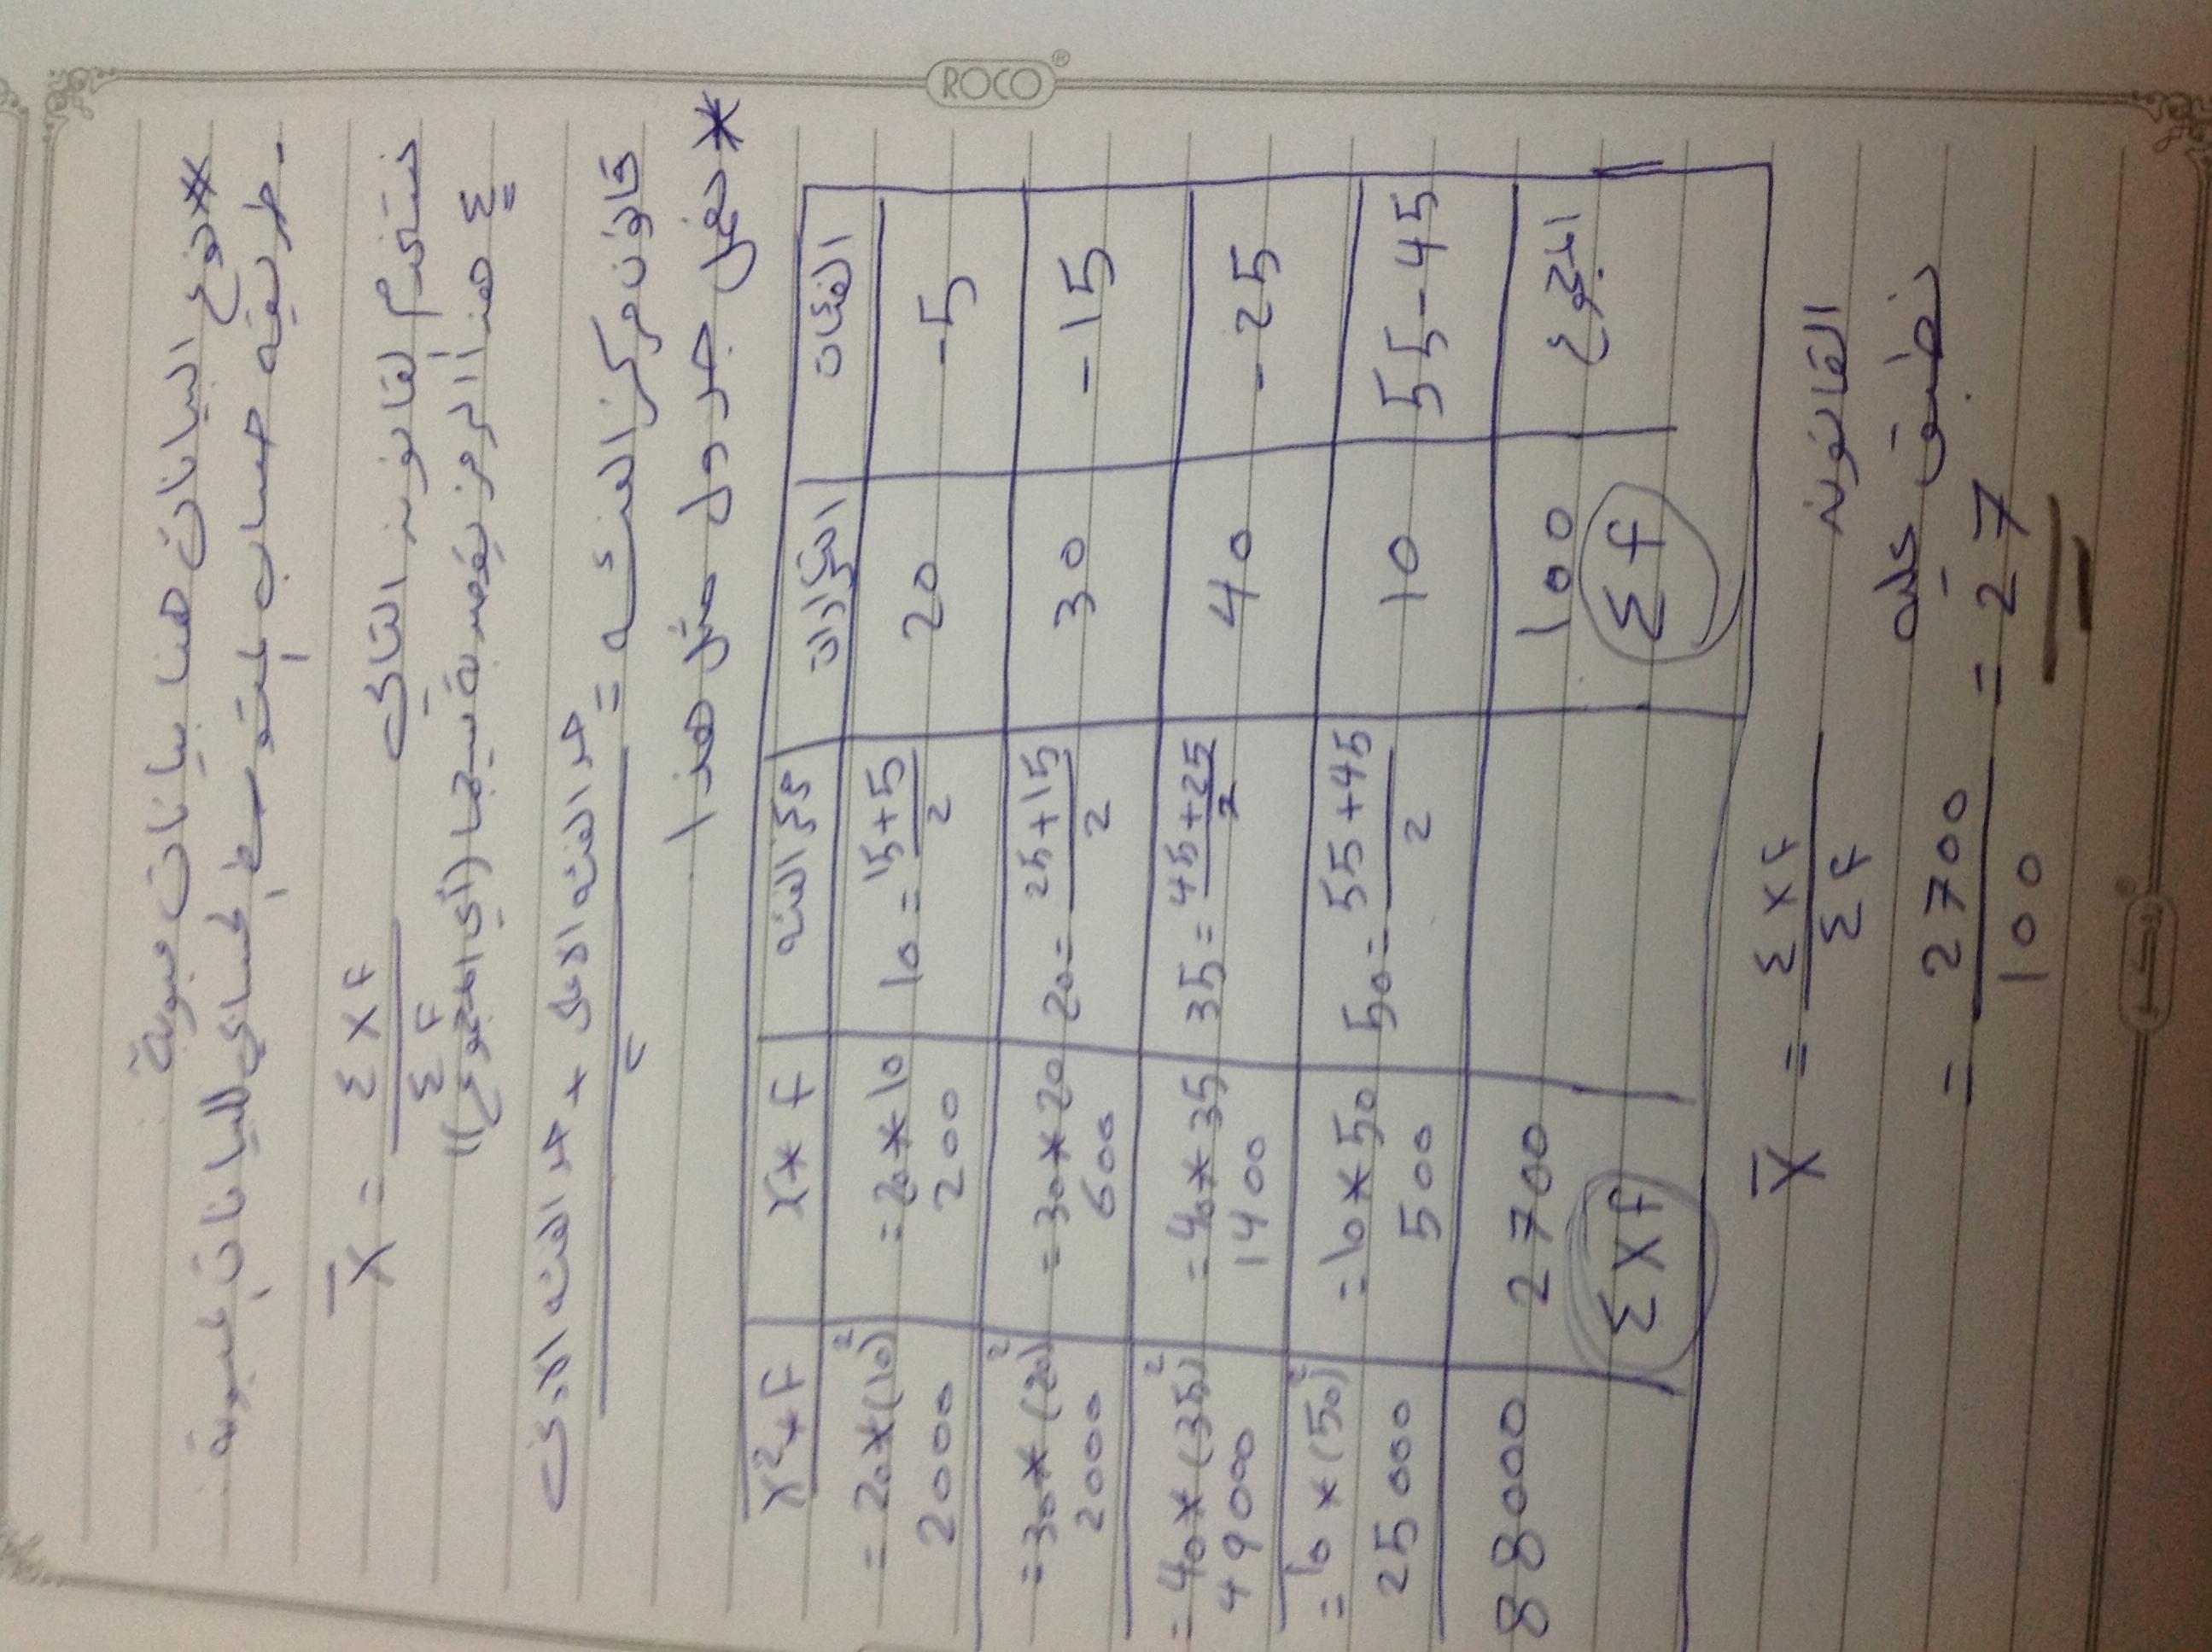 ROCO®
* نوع البيانات هنا بيانات مبوبة
- طريقه حساب المتوسط الحسابي للبيانات المبوبة
نستخدم القانون التالي X̄ = Σxf / Σf
Σ هذا الرمز يقصد به سيجما (أي المجموع))
قانون مركز الفئه = حد الفئه الاعلى + حد الفئه الادنى / 2
* نعمل جدول مثل هذا
الفئات التكرارات مركز الفئه x*f x²*f
5- 20 10 = 15+5 / 2 =20*10 200 =20*(10)² 2000
15- 30 20 = 25+15 / 2 =30*20 600 =30*(20)² 2000
25- 40 35 = 45+25 / 2 =40*35 1400 =40*(35)² 49000
55-45 10 50 = 55+45 / 2 =10*50 500 =10*(50)² 25000
المجموع 100 2700 88000
Σf Σxf
القانون X̄ = Σxf / Σf
نطبق عليه
= 2700 / 100 = 27